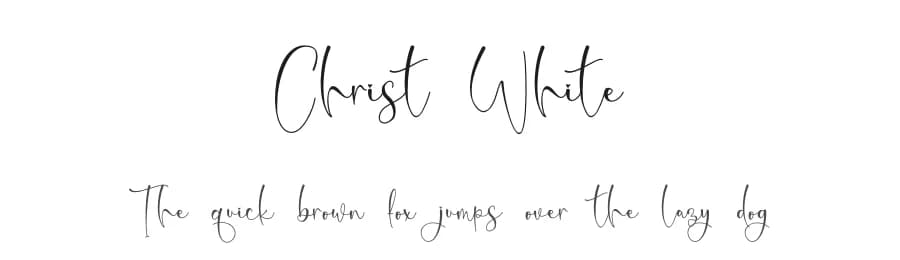 Christ White
The quick brown fox jumps over the lazy dog